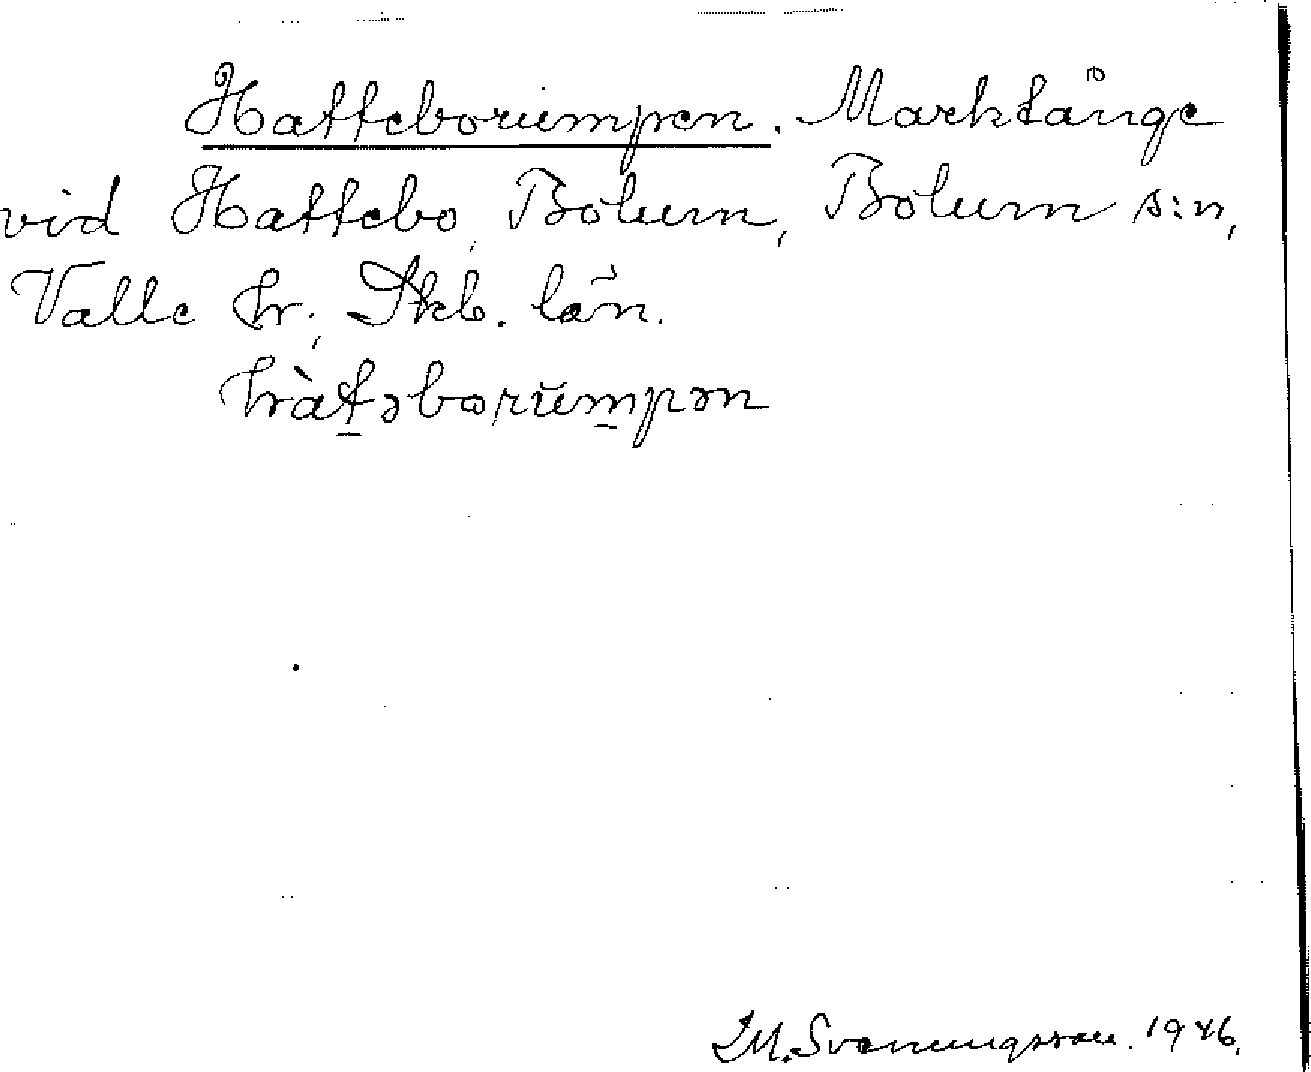 Hatteborumpen. Marktånge
vid Hattebo, Bolum, Bolum s:n,
Valle hr; Skb. län.
hàt̠əborŭm̠pən
M. Svanungsson. 1946.